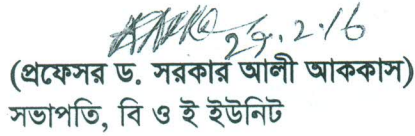 29.2.16
(প্রফেসর ড. সরকার আলী আককাস)
সভাপতি, বি ও ই ইউনিট